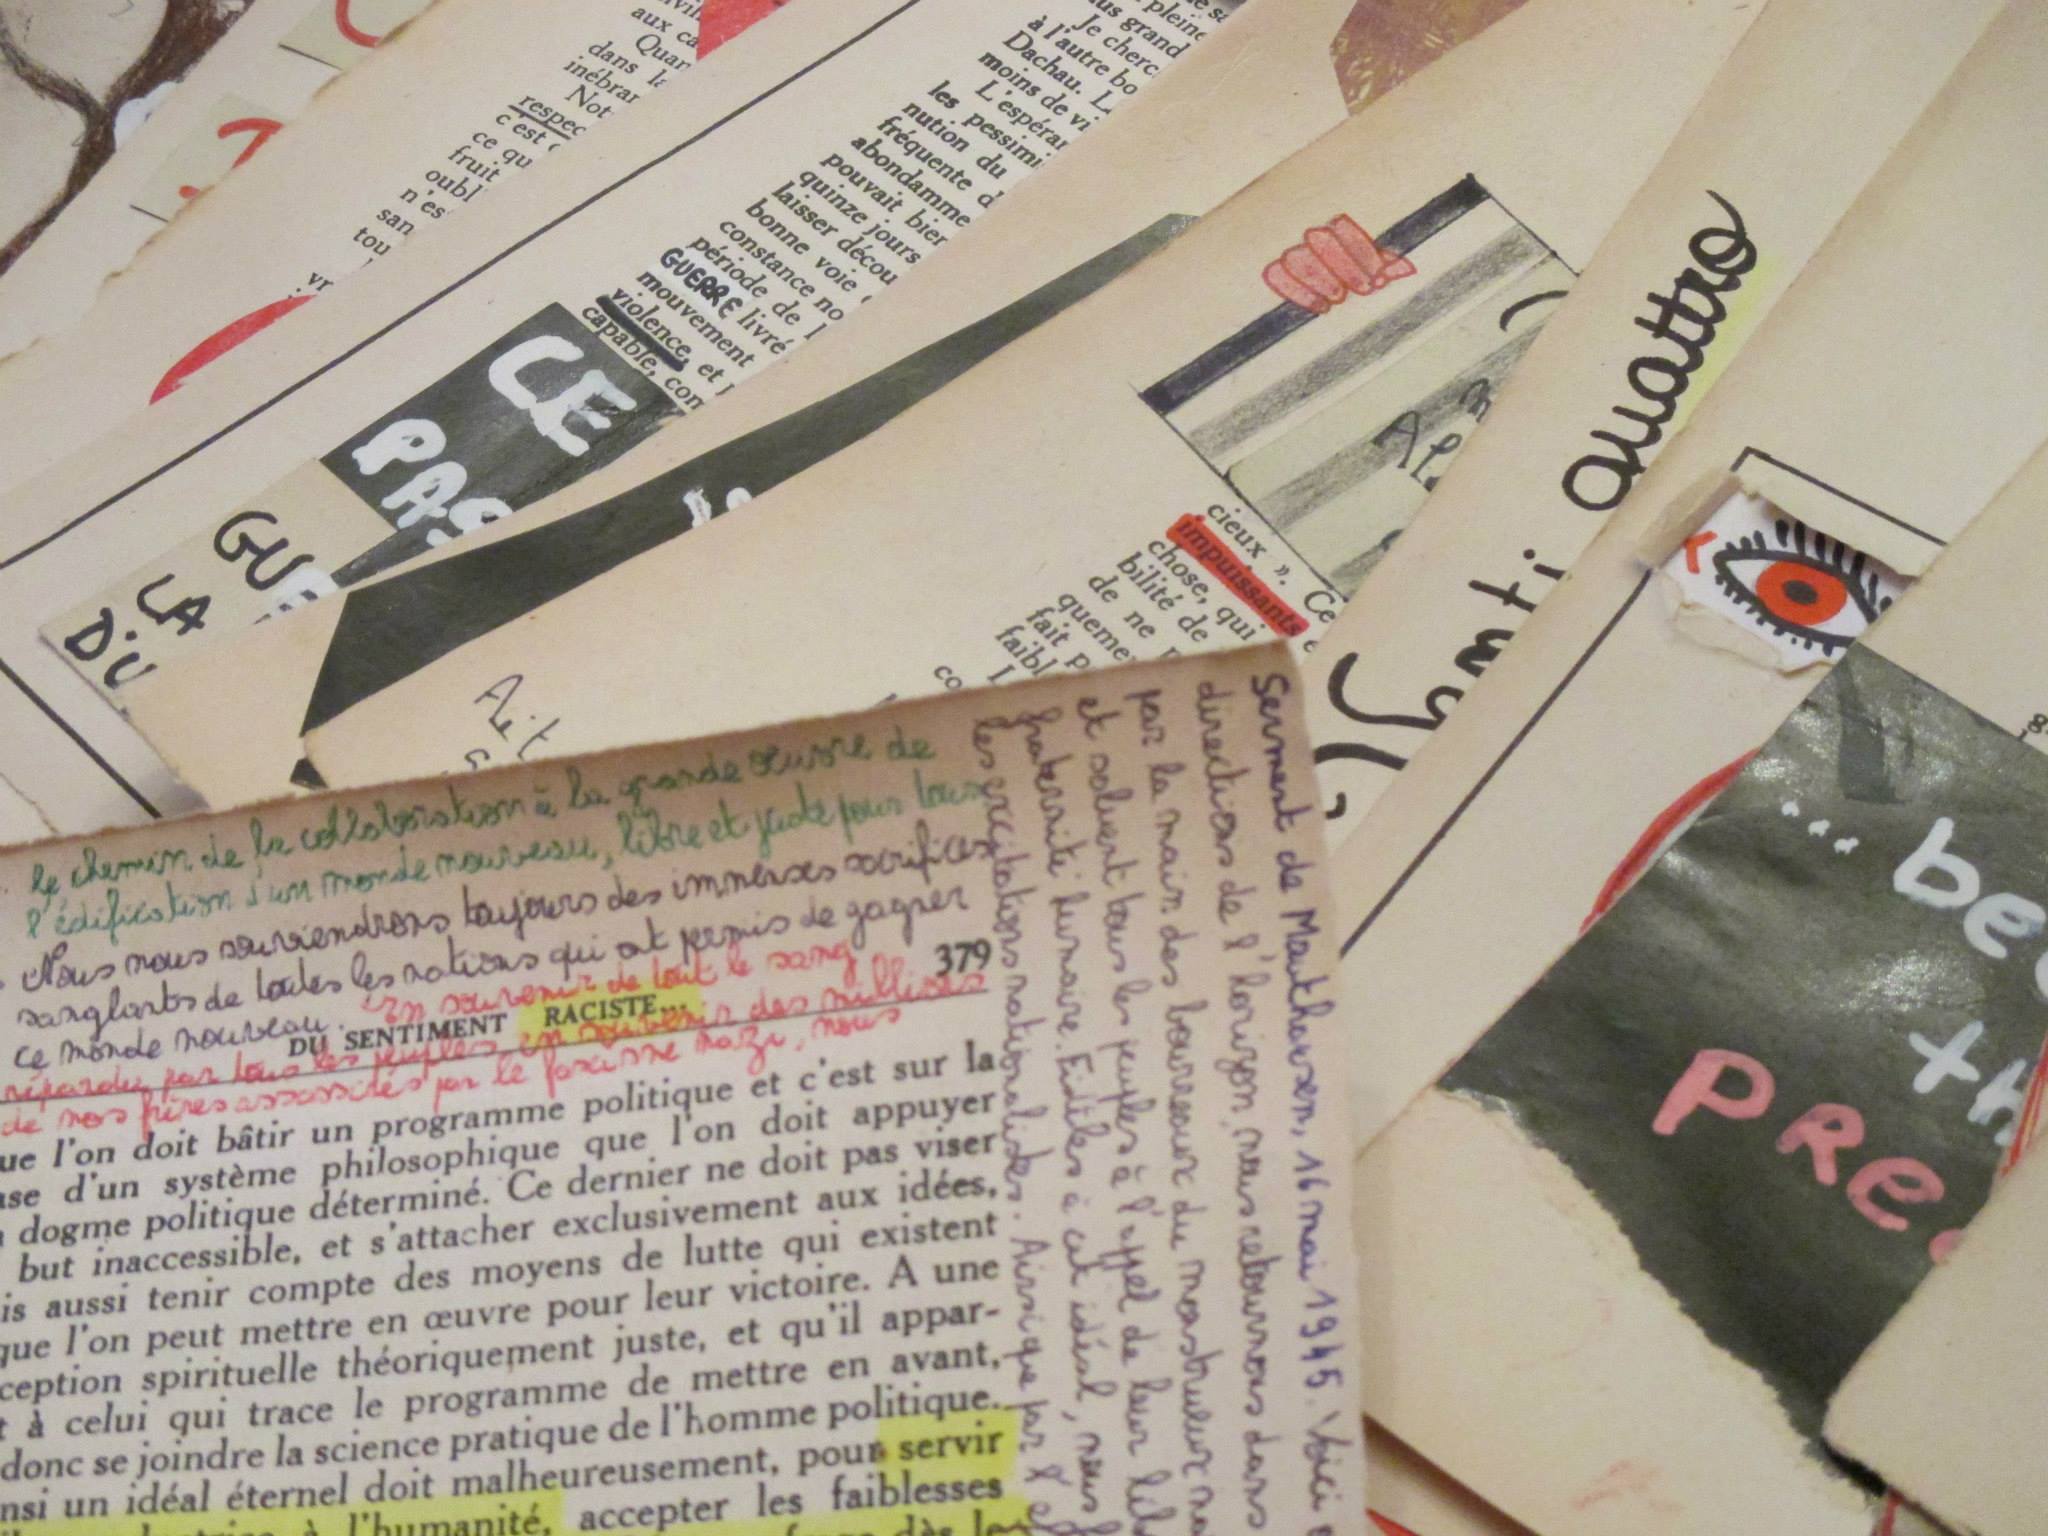 aux ca
Quar
dans la
inébrar
Not
respec
c'est c
ce qu
fruit
oubl
n'es
san
tou
vr
pleine
us grand
Je cherc
à l'autre bo
Dachau. L
moins de vi
L'espérar
les pessimi
nution du
fréquente d
abondamme
pouvait bien
quinze jours
laisser décou
bonne voie
constance no
période de l
GUERRE livré
mouvement
violence, et
capable, com
CE
PAS
GU
LA
DU
Ait
cieux ». Ce
impuissants
chose, qui
bilité de
de ne
quemer
fait p
faibl
quattro
... bec
th
PRe
le chemin de la collaboration à la grande œuvre de
l'édification d'un monde nouveau, libre et juste pour tous
Nous nous souviendrons toujours des immenses sacrifices
sanglants de toutes les nations qui ont permis de gagner
ce monde nouveau. En souvenir de tout le sang
379
DU SENTIMENT RACISTE...
répandu par tous les peuples en souvenir des millions
de nos frères assassinés par le fascisme nazi, nous
ue l'on doit bâtir un programme politique et c'est sur la
ase d'un système philosophique que l'on doit appuyer
dogme politique déterminé. Ce dernier ne doit pas viser
but inaccessible, et s'attacher exclusivement aux idées,
is aussi tenir compte des moyens de lutte qui existent
que l'on peut mettre en œuvre pour leur victoire. A une
ception spirituelle théoriquement juste, et qu'il appar-
t à celui qui trace le programme de mettre en avant,
donc se joindre la science pratique de l'homme politique.
nsi un idéal éternel doit malheureusement, pour servir
à l'humanité, accepter les faiblesses
dès le
Serment de Mauthausen, 16 mai 1945. Voici
directions de l'horizon, nous retournons dans
par la main des bourreaux du monstrueux na
et saluent tous les peuples à l'appel de leur lib
fraternité humaine. Fidèles à cet idéal, nous
les excitations nationalistes. Ainsi que par l'